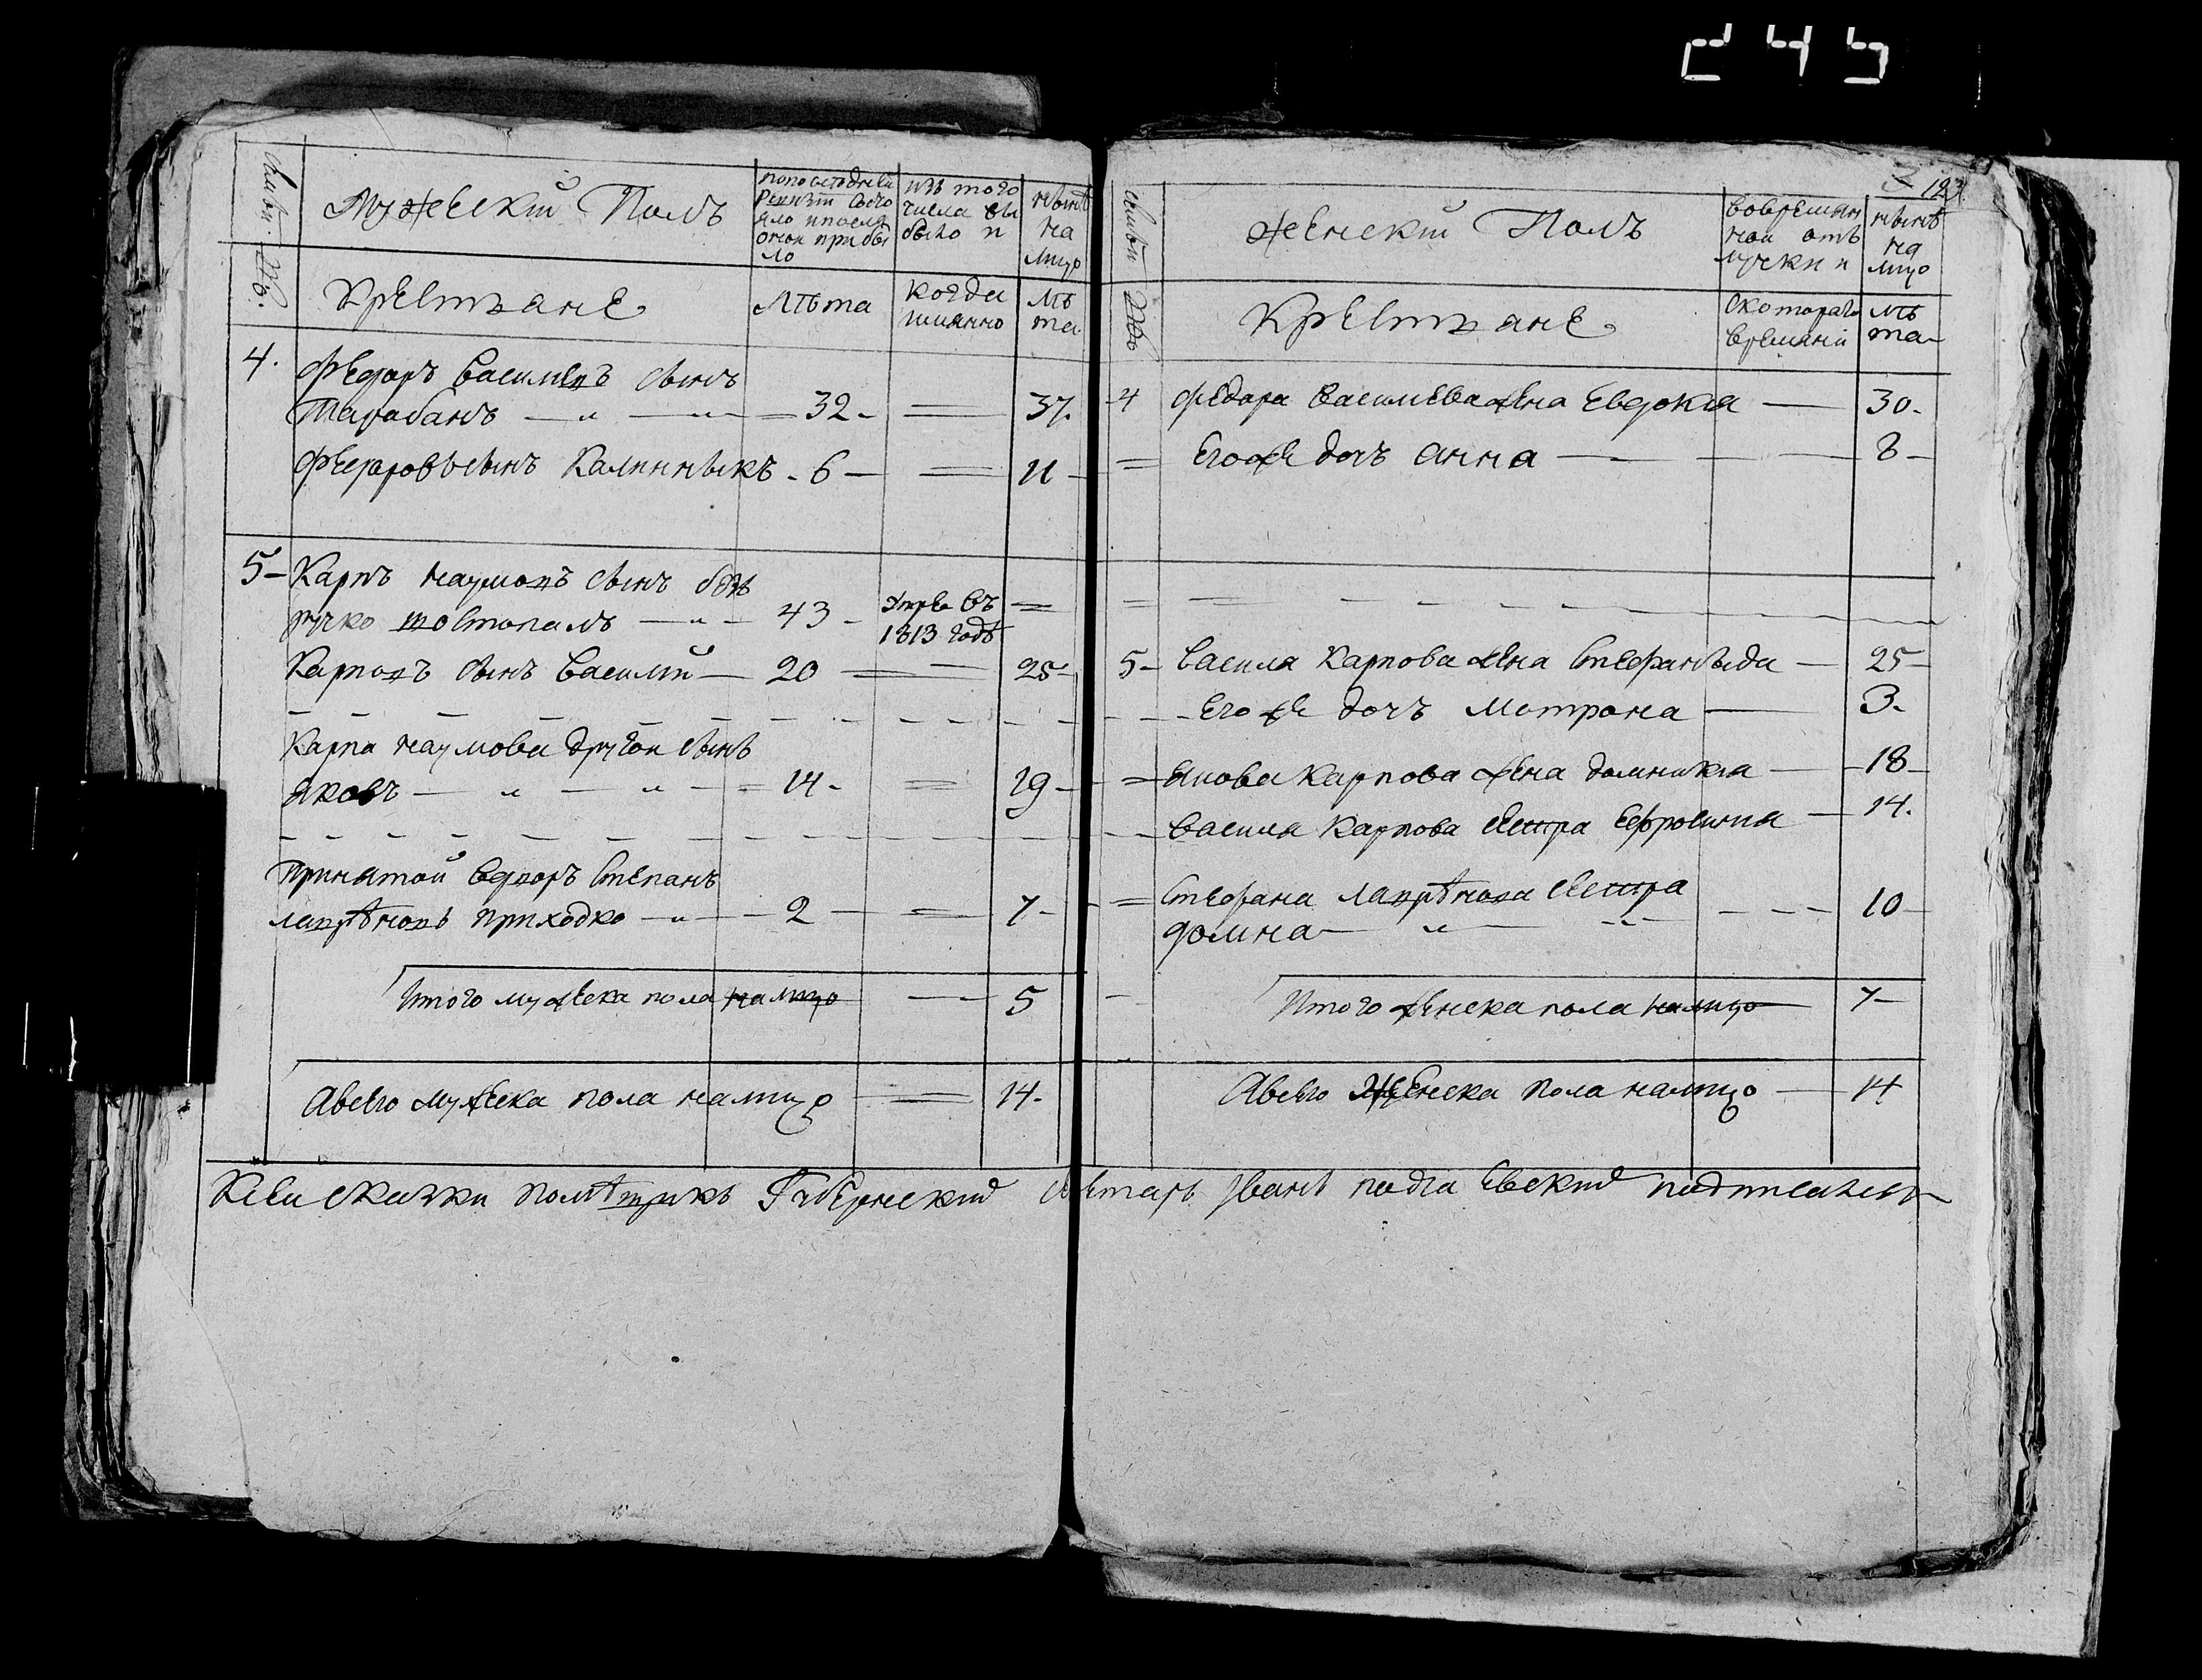 245
семьи №.
Мужескій Полъ
попоследней
Ревизіи состо
яло ипосле
оной прибы
ло
изъ того
числа вы
было и
ныне
на
лицо
Крестъяне
лѣта
когда
имянно
лѣ
та
4. Федоръ Василевъ сынъ
Тарабанъ — " — " — 32 — 37.
Федоровъ сынъ Калинныкъ - 6 — 11
5 — Карпъ наумовъ сынъ без
ручко товстопалъ — " — 43 - умре въ
1813 годѣ
Карповъ сынъ Василій — 20 — 25
Карпа наумова другой сынъ
яковъ — " — " — 14 - 19
принятой едворъ Степанъ
лаврѣновъ приходко — " — 2 — 7
Итого мужеска пола налицо — 5
Авсего мужеска пола налицо 14.
123
семьи №
женскій Полъ
вовремян
ной отъ
лучки и
ныне
на
лицо
Крестъяне
скотораго
времяни
лѣ
та
4 Федора Василева жена Евдокия — 30.
Егоже дочъ анна — 8
5 - Василя Карпова жена Стефанѣда — 25
Его же дочъ Мотрона — 3.
якова Карпова жена домникия — 18
Василя Карпова сестра Ефросиния — 14.
Стефана лаврѣнова сестра
домна — " — " — 10
Итого женска пола налицо 7
Авсего Женска пола налицо — 14
Ксеи скаски помѣщикъ Губернский секетарь Іванъ подгаевский подписался